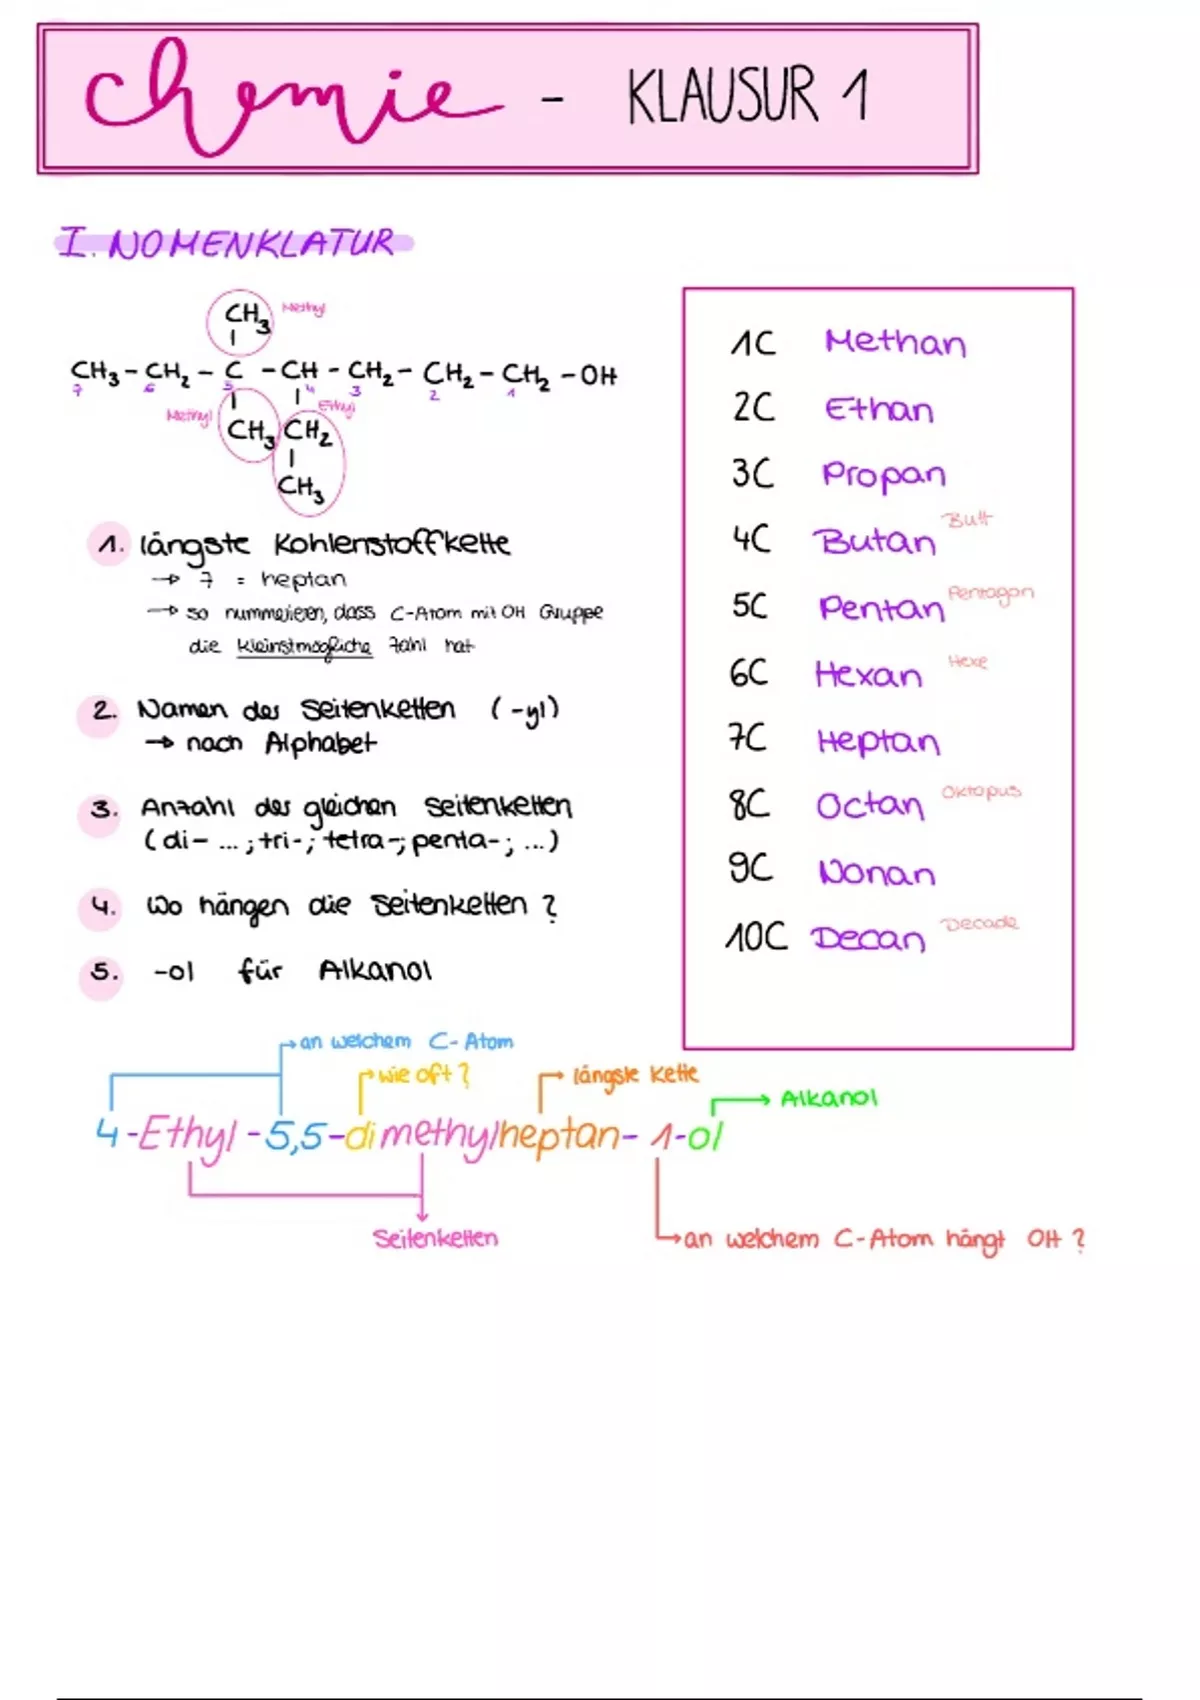 chemie - KLAUSUR 1
I. NOMENKLATUR
CH3 Methyl
CH3 - CH2 - C - CH - CH2 - CH2 - CH2 - OH
7 6 5 4 3 2 1
Methyl CH3 CH2 Ethyl
CH3
1. längste Kohlenstoffkette
→ 7 = heptan
→ so nummerieren, dass C-Atom mit OH Gruppe
die kleinstmögliche Zahl hat
2. Namen der Seitenketten (-yl)
→ nach Alphabet
3. Anzahl der gleichen Seitenketten
(di- ...; tri-; tetra-; penta-; ...)
4. Wo hängen die Seitenketten ?
5. -ol für Alkanol
1C Methan
2C Ethan
3C Propan
4C Butan Butt
5C Pentan Pentagon
6C Hexan Hexe
7C Heptan
8C Octan Oktopus
9C Nonan
10C Decan Decade
→ an welchem C-Atom
→ wie oft ?
→ längste Kette
→ Alkanol
4-Ethyl-5,5-dimethylheptan-1-ol
Seitenketten
→ an welchem C-Atom hängt OH ?